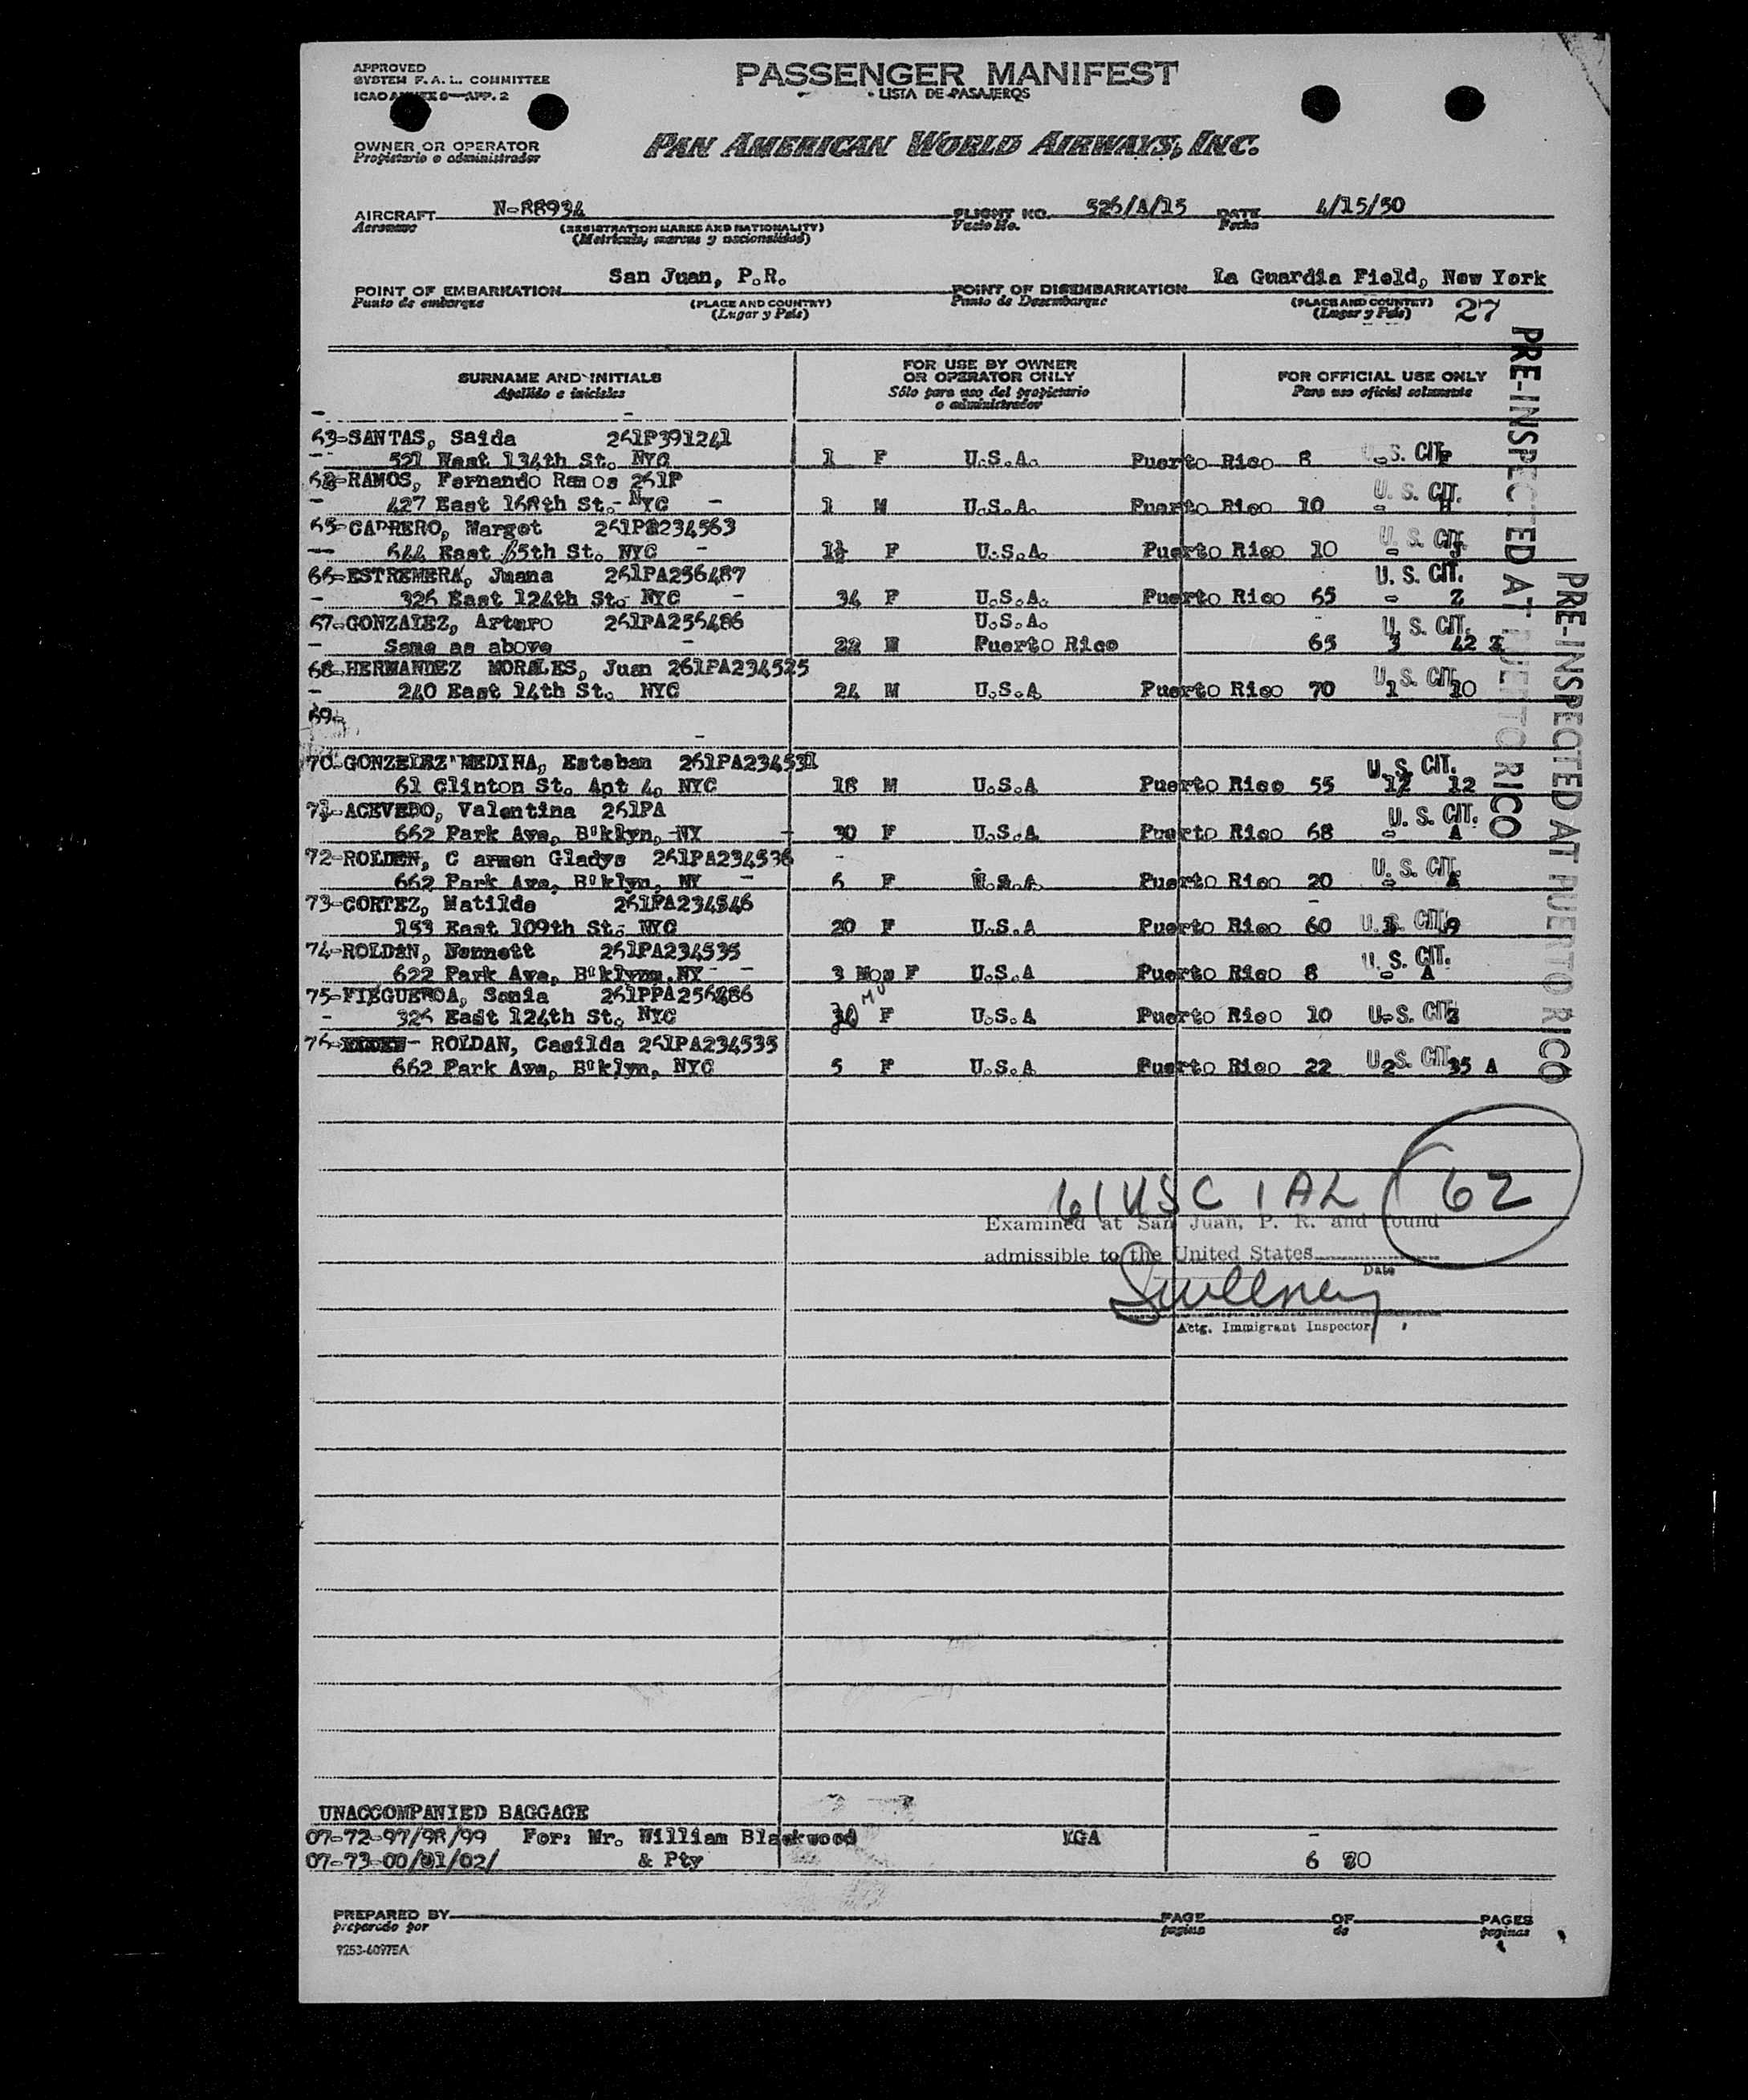 APPROVED
SYSTEM F. A. L. COMMITTEE
ICAO ANNEX 9—APP. 2
PASSENGER MANIFEST
LISTA DE PASAJEROS
OWNER OR OPERATOR
Propietario o administrador
PAN AMERICAN WORLD AIRWAYS, INC.
AIRCRAFT N-88934 FLIGHT NO. 526/4/15 DATE 4/15/50
Aeronave (REGISTRATION MARKS AND NATIONALITY) Vuelo No. Fecha
(Matricula, marcas y nacionalidad)
POINT OF EMBARKATION San Juan, P.R. POINT OF DISEMBARKATION La Guardia Field, New York
Punto de embarque (PLACE AND COUNTRY) Punto de Desembarque (PLACE AND COUNTRY)
(Lugar y País) (Lugar y País) 27
SURNAME AND INITIALS FOR USE BY OWNER OR OPERATOR ONLY FOR OFFICIAL USE ONLY
Apellido e iniciales Sólo para uso del propietario o administrador Para uso oficial solamente
63-SANTAS, Saida 261P391241
521 West 134th St. NYC 1 F U.S.A. Puerto Rico 8 U.S. CIT.
RAMOS, Fernando Ramos 261P
427 East 168th St. NYC 1 M U.S.A. Puerto Rico 10 - U. S. CIT. H
65-CARRERO, Margot
East St. NYC 1½ F U.S.A. Puerto Rico 10 - U. S. CIT.
66-ESTREMERA, Juana 261PA256487
326 East 124th St. NYC 34 F U.S.A. Puerto Rico 65 - U. S. CIT. Z
67-GONZALEZ, Arturo 261PA256486 U.S.A.
Same as above 22 M Puerto Rico 65 3 U. S. CIT. 42 Z
68-HERNANDEZ MORALES, Juan 261PA234525
240 East 14th St. NYC 24 M U.S.A Puerto Rico 70 1 U. S. CIT. 10
69-
70- MEDINA, Esteban 261PA234531
61 Clinton St. Apt 4, NYC 18 M U.S.A Puerto Rico 55 12 U.S. CIT. 12
71-ACEVEDO, Valentina 261PA
662 Park Ave, B'klyn, NY 30 F U.S.A Puerto Rico 68 - U. S. CIT. A
72-ROLDEN, C armen Gladys 261PA234536
662 Park Ave, B'klyn, NY 6 F U.S.A Puerto Rico 20 - U. S. CIT. A
73-CORTEZ, Matilde 261PA234546
153 East 109th St. NYC 20 F U.S.A Puerto Rico 60 U.S. CIT. 9
74-ROLDAN, Nennett 261PA234535
622 Park Ave, B'klyn, NY 3 Mos F U.S.A Puerto Rico 8 - U. S. CIT. A
75-FIEGUEROA, Sonia 261PPA256486
326 East 124th St. NYC F U.S.A Puerto Rico 10 U.S. CIT.
76- ROLDAN, Casilda 261PA234535
662 Park Ave, B'klyn, NYC 5 F U.S.A Puerto Rico 22 2 U.S. CIT. 35 A
PRE-INSPECTED AT PUERTO RICO
PRE-INSPECTED AT PUERTO RICO
61 USC 1 AL 62
Examined at San Juan, P. R. and found
admissible to the United States
Date
Sweeney
Actg. Immigrant Inspector
UNACCOMPANIED BAGGAGE
07-72-97/98/99 For: Mr. William Blackwood -
07-73-00/01/02/ & Pty 6 80
PREPARED BY PAGE OF PAGES
preparado por pagina de paginas
9253-6097EA